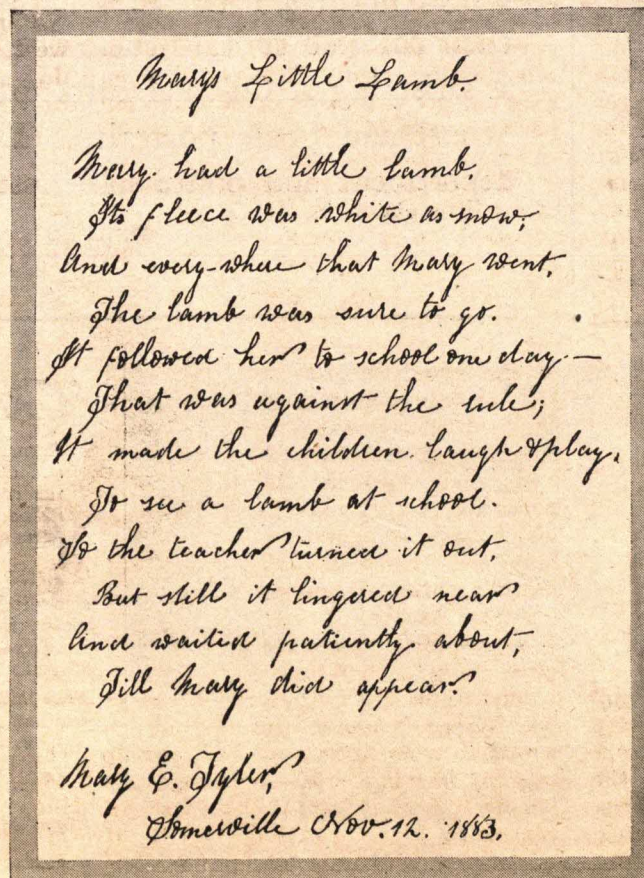 Marys Little Lamb.
Mary had a little lamb,
Its fleece was white as snow,
And every-where that Mary went,
The lamb was sure to go.
It followed her to school one day—
That was against the rule;
It made the children laugh & play,
To see a lamb at school.
So the teacher turned it out,
But still it lingered near
And waited patiently about,
Till Mary did appear.
Mary E. Tyler,
Somerville Nov. 12. 1883.